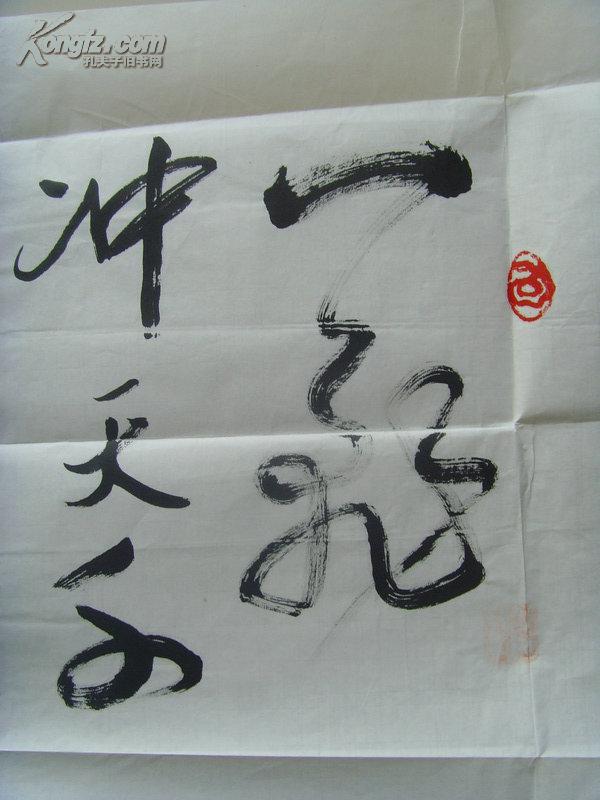 Kongfz.com
孔夫子旧书网
一飛
冲天